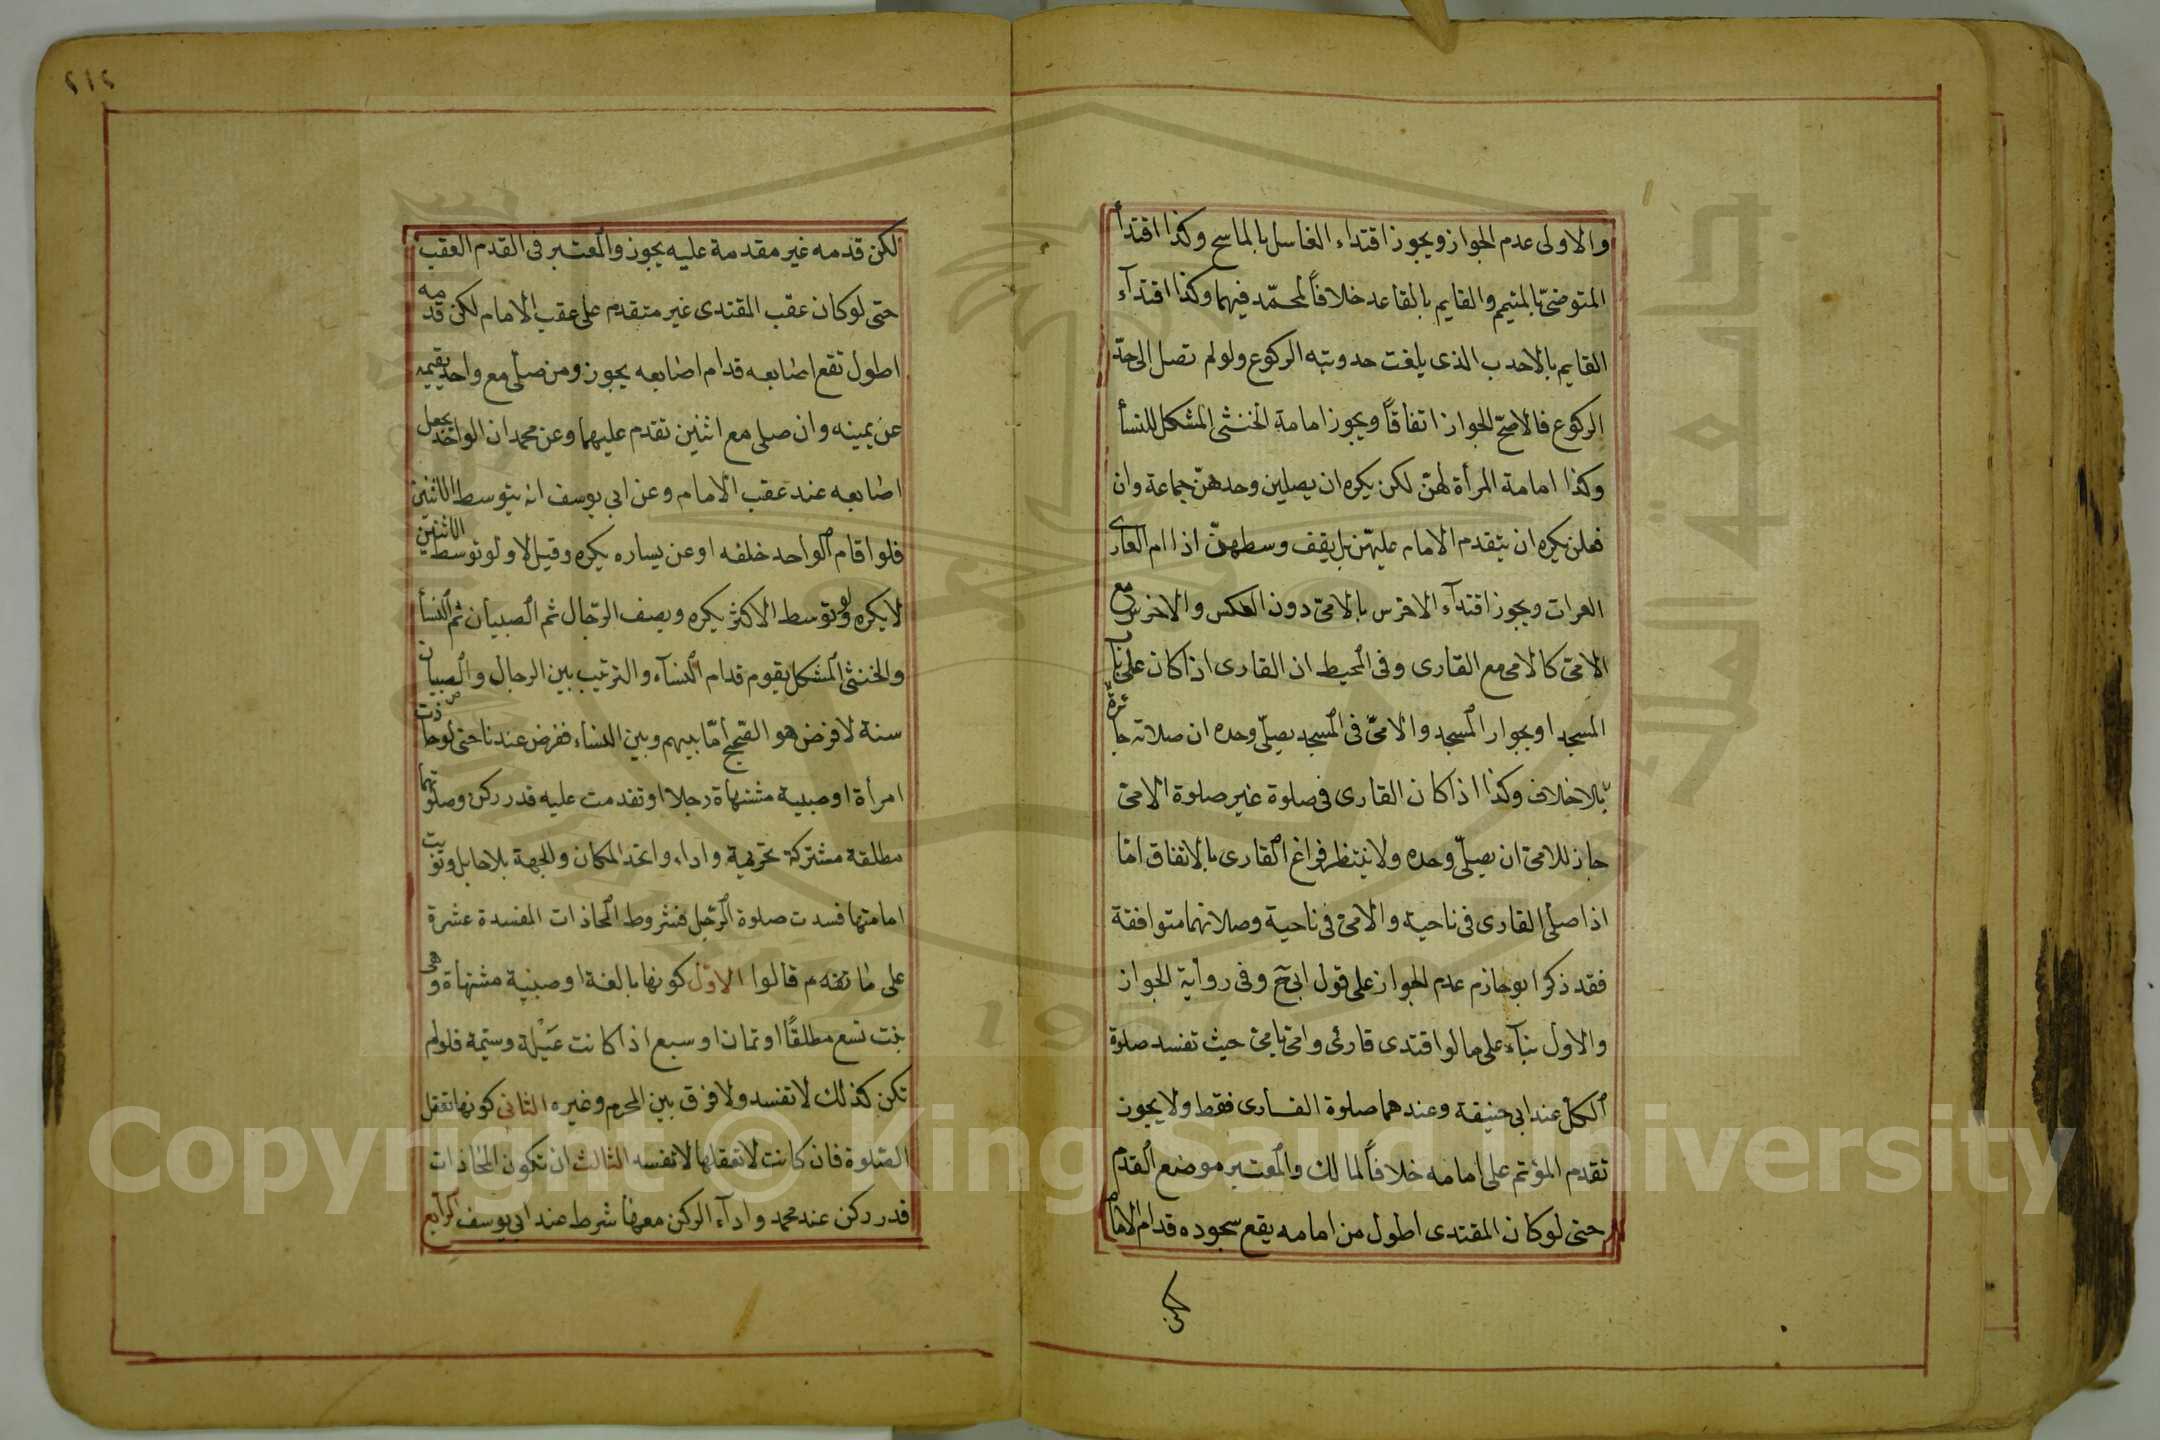 والاولى عدم الجواز ويجوز اقتداء الغاسل بالماسح وكذا اقتدأ
المتوضئ بالمتيمم والقايم بالقاعد خلافاً لمحمّد فيهما وكذا اقتدآء
القايم بالاحدب الذى بلغت حدوبته الركوع ولو لم تصل الى حدّ
الركوع فالاصحّ الجواز اتفاقاً ويجوز امامة الخنثى المشكل للنسأ
وكذا امامة المرأة لهنّ لكن يكره ان يصلين وحدهنّ جماعة وان
فعلن يكره ان يتقدم الامام عليهنّ بل يقف وسطهنّ اذا ام العارى
العرات ويجوز اقتدآء الاخرس بالامىّ دون العكس والاخرس مع
الامىّ كالامى مع القارى وفى المحيط ان القارى اذا كان على باب
المسجد او بجوار المسجد والامىّ فى المسجد يصلّى وحده ان صلاته جائزة
بلا خلاف وكذا اذا كان القارى فى صلوة غير صلوة الامىّ
جاز للامىّ ان يصلّى وحده ولا ينتظر فراغ القارى بالاتفاق امّا
اذا صلى القارى فى ناحية والامىّ فى ناحية وصلاتهما متوافقة
فقد ذكر ابو حازم عدم الجواز على قول ابى ح وفى رواية الجواز
والاول بنآء على ما لو اقتدى قارئ وامى بامىّ حيث تفسد صلوة
الكل عند ابى حنيفة وعندهما صلوة القارى فقط ولا يجوز
تقدم المؤتم على امامه خلافاً لمالك والمعتبر موضع القدم
حتى لو كان المقتدى اطول من امامه يقع سجوده قدام الامام
لكن
٢١٢
لكن قدمه غير مقدمة عليه يجوز والمعتبر فى القدم العقب
حتى لو كان عقب المقتدى غير متقدم على عقب الامام لكن قدمه
اطول تقع اصابعه قدام اصابعه يجوز ومن صلّى مع واحد يقيمه
عن يمينه وان صلى مع اثنين تقدم عليهما وعن محمد ان الواحد يجعل
اصابعه عند عقب الامام وعن ابى يوسف انه يتوسط الاثنين
فلو اقام الواحد خلفه او عن يساره يكره وقيل لا ولو توسط الاثنين
لا يكره ولو توسط الاكثر يكره ويصف الرّجال ثم الصبيان ثم النسأ
والخنثى المشكل يقوم قدام النسآء والترتيب بين الرجال والصبيان
سنة لا فرض هو الصّحيح امّا بينهم وبين النساء ففرض عندنا حتى لو حاذت
امرأة او صبية مشتهاة رجلا او تقدمت عليه قدر ركن وصلوتهما
مطلقة مشتركة تحريمة واداء واتحد المكان والجهة بلا حايل ونويت
امامتها فسدت صلوة الرّجل فشروط المحاذات المفسدة عشرة
على ما قالوا الاوّل كونها بالغة او صبية مشتهاة وهى
بنت تسع مطلقًا او ثمان او سبع اذا كانت عَبْلة وستيمة فلو لم
تكن كذلك لا تفسد ولا فرق بين المحرم وغيره الثانى كونها تعقل
الصّلوة فان كانت لا تعقلها لا تفسد الثالث ان تكون المحاذات
قدر ركن عند محمد وادآء الركن معها شرط عند ابى يوسف الرابع
Copyright © King Saud University
1957